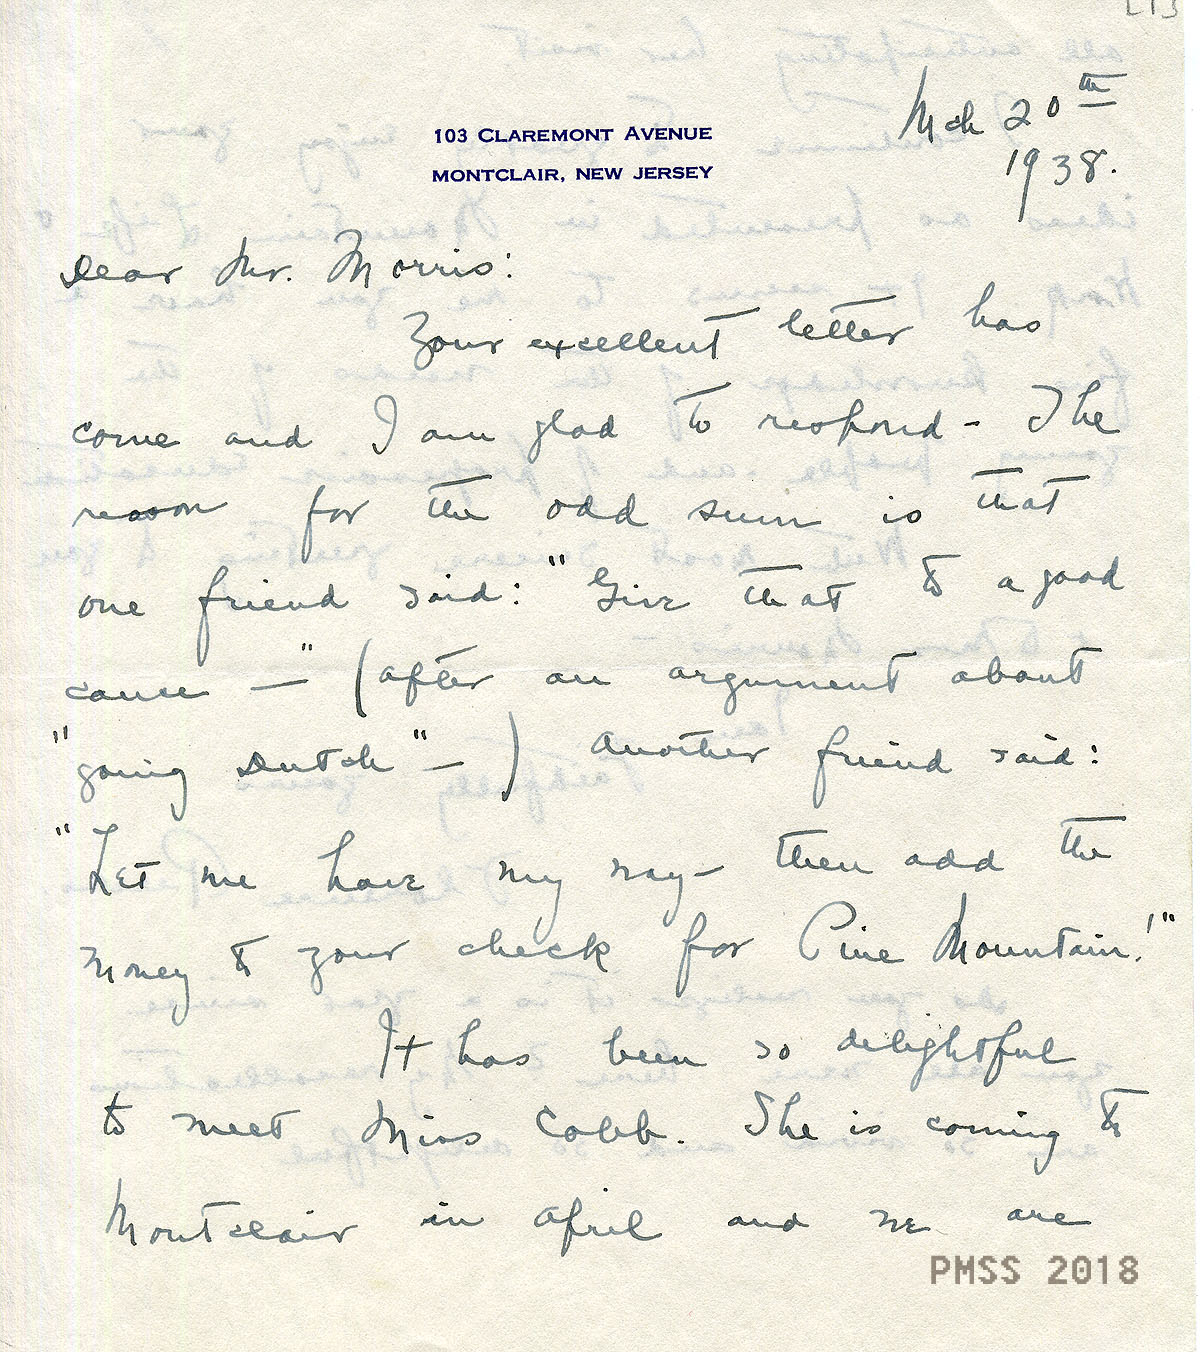 Mch 20th
1938.
103 CLAREMONT AVENUE
MONTCLAIR, NEW JERSEY
Dear Mr. Morris:
Your excellent letter has
come and I am glad to respond - The
reason for the odd sum is that
one friend said: "Give that to a good
cause —" (after an argument about
"going Dutch" —) Another friend said:
"Let me have my say - then add the
money to your check for Pine Mountain!"
It has been so delightful
to meet Miss Cobb. She is coming to
Montclair in April and we are
PMSS 2018